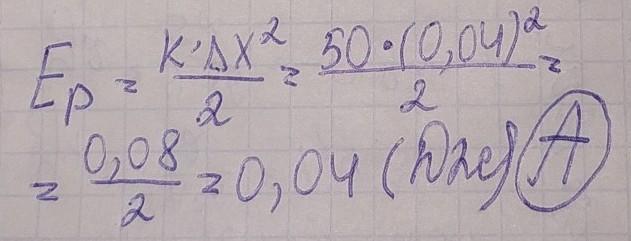 Eₚ = K·ΔX²/2 = 50·(0,04)²/2 =
= 0,08/2 = 0,04 (Дж) А